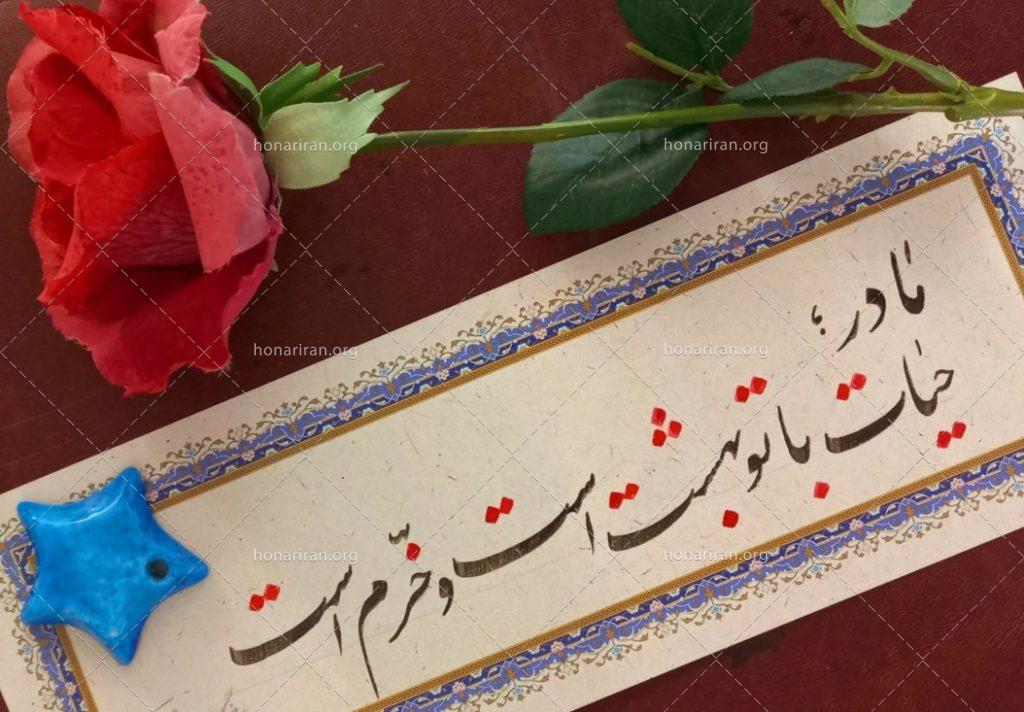 مادر؛
حیات با تو بهشت است و خرّم است
honariran.org honariran.org
honariran.org honariran.org
honariran.org honariran.org